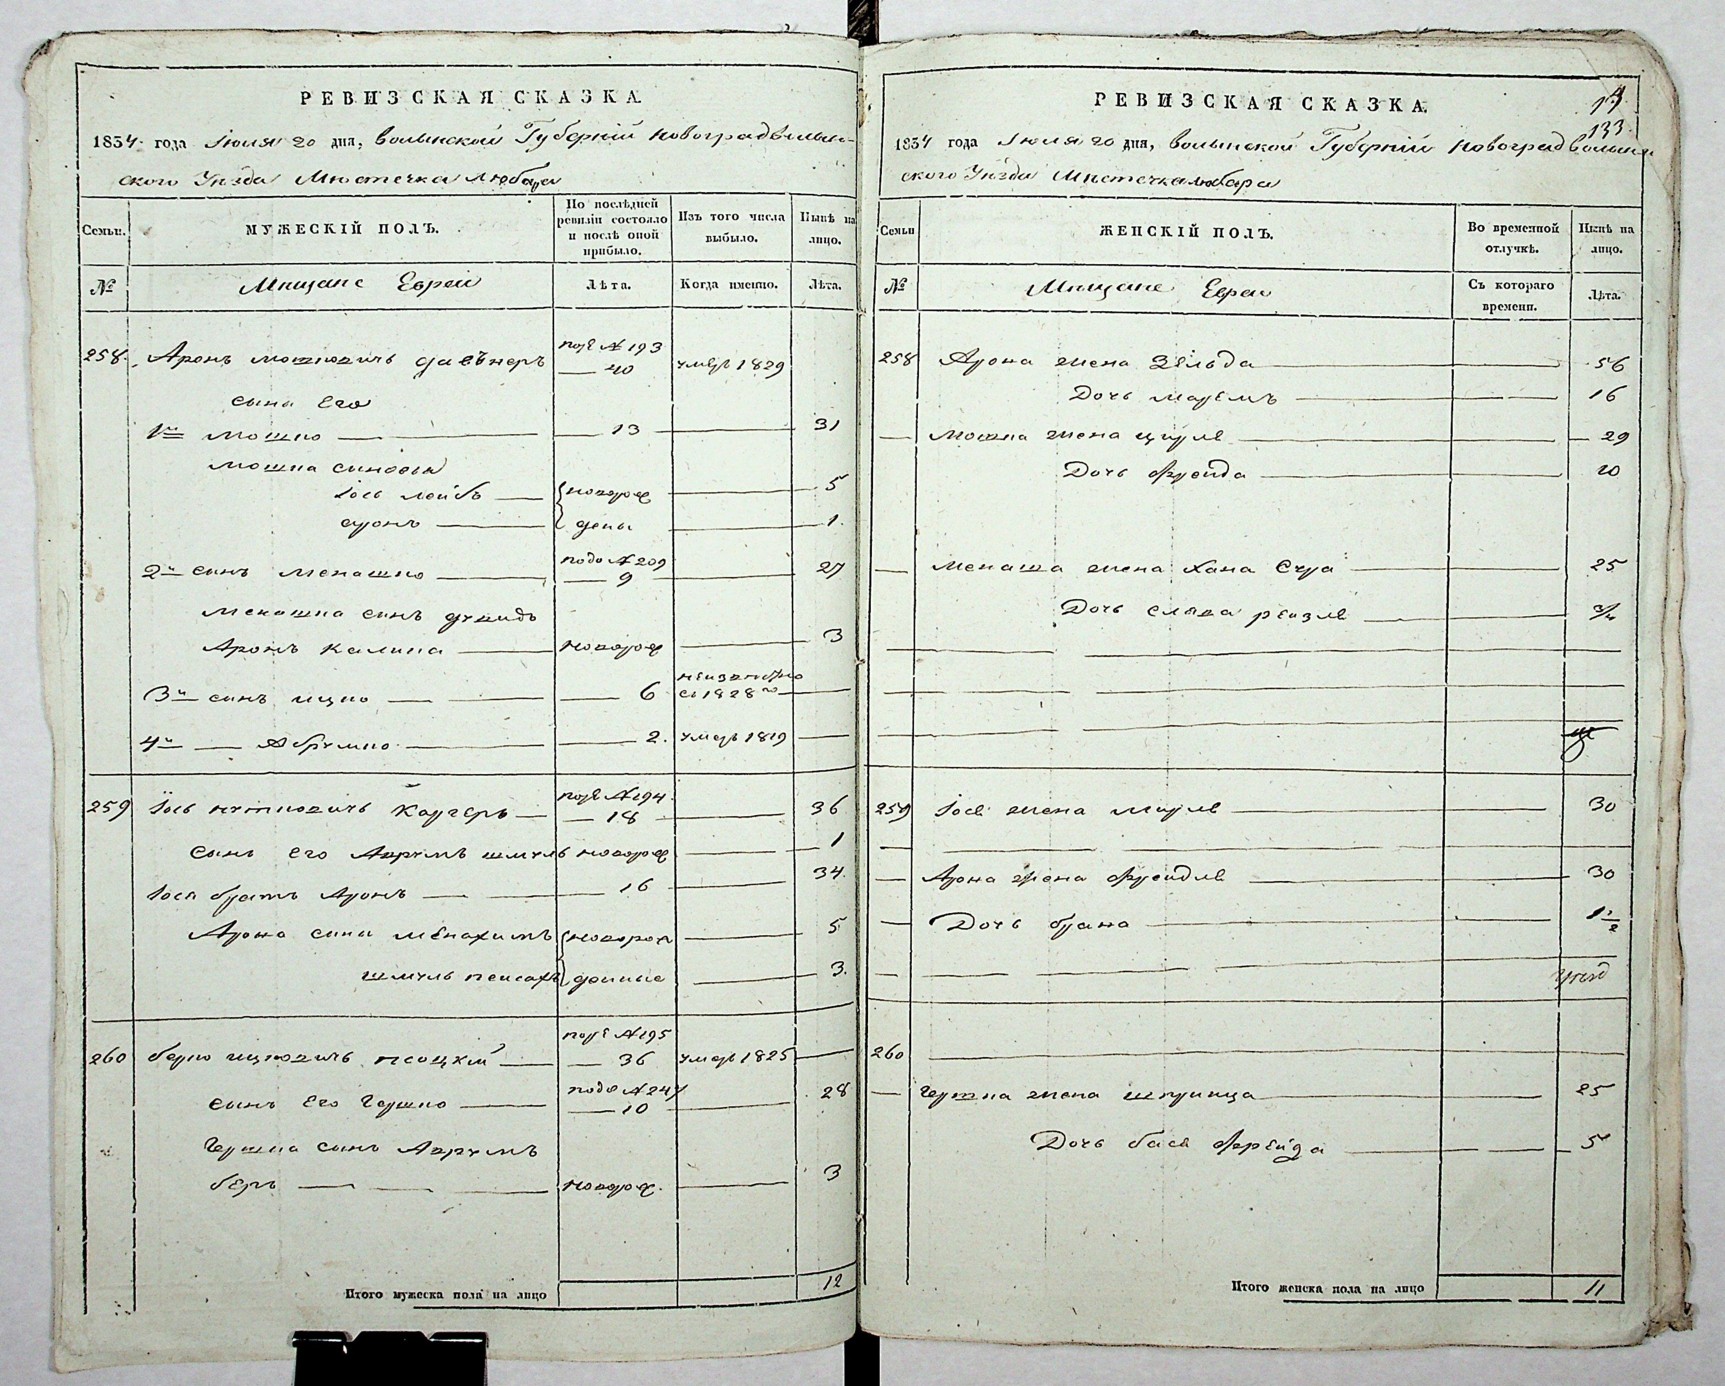 РЕВИЗСКАЯ СКАЗКА.
1834 года Іюля 20 дня, Волынской Губерніи Новоградволын-
ского Уѣзда Мѣстечка Любара
Семьи. МУЖЕСКІЙ ПОЛЪ. По послѣдней ревизіи состояло и послѣ оной прибыло. Изъ того числа выбыло. Нынѣ на лицо.
№ Мѣщане Евреи Лѣта. Когда именно. Лѣта.
258. Аронъ Мошковичъ подъ № 193 40 умеръ 1829
сыны Его
1й Мошко 13 31
Мошка сыновья
Іось Лейбъ новорож 5
Аронъ дены 1.
2й сынъ Менашко подъ № 209 9 27
Менашка сынъ Дувидъ
Аронъ Калмана новорож 3
3й сынъ Ицко 6 неизвѣстно съ 1828го
4й Абрумко 2. умеръ 1819
259 Іось Нутковичъ подъ № 194 18 36
сынъ Его Аврумъ Шмуль новорож 1
Іося братъ Аронъ 16 34.
Арона сыны Менахимъ новорож 5
Шмуль Пейсахъ денные 3.
260 Берко Ицковичъ подъ № 195 36 умеръ 1825
сынъ Его Гершко подъ № 247 10 28
Гершка сынъ Аврумъ
Беръ новорож. 3
Итого мужеска пола на лицо 12
РЕВИЗСКАЯ СКАЗКА.
133
1834 года Іюля 20 дня, Волынской Губерніи Новоградволын
ского Уѣзда Мѣстечка Любара
Семьи ЖЕНСКІЙ ПОЛЪ. Во временной отлучкѣ. Нынѣ на лицо.
№ Мѣщане Евреи Съ котораго времени. Лѣта.
258 Арона жена Зельда 56
Дочь Марьемъ 16
Мошка жена Цирля 29
Дочь Фрейда 10
Менаша жена Хана Сура 25
Дочь Слава Рейзля 3/4
259 Іося жена Мирля 30
Арона жена Фрейдля 30
Дочь Брана 1 1/2
260
Гершка жена Шпринца 25
Дочь Бася Фрейда 5
Итого женска пола на лицо 11